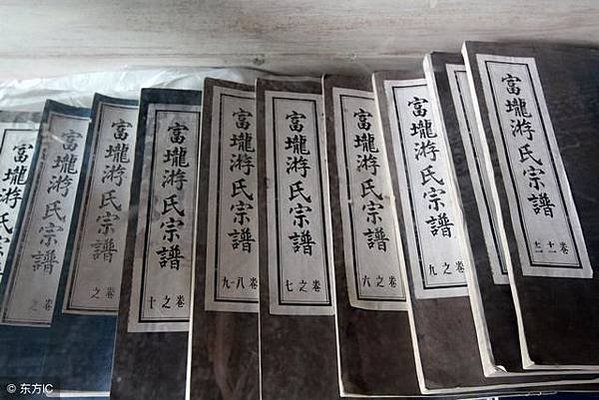 富壠游氏
富壠游氏宗譜
卷之
富壠游氏宗譜
卷之
富壠游氏宗譜
卷之十
富壠游氏宗譜
卷八-九
富壠游氏宗譜
卷之七
富壠游氏宗譜
卷之六
富壠游氏宗譜
卷之九
富壠游氏宗譜
© 东方IC